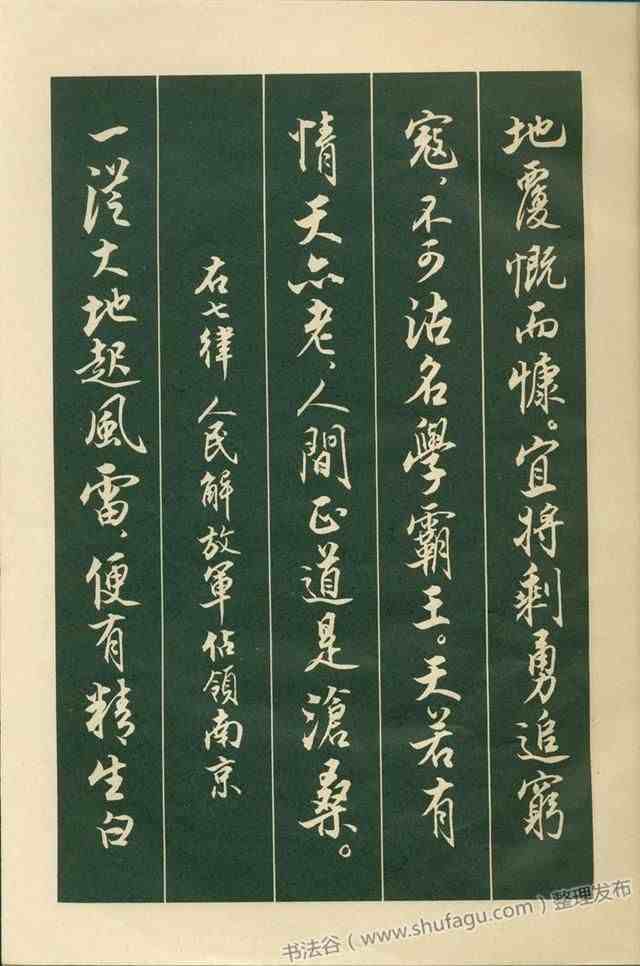 地覆慨而慷。宜將剩勇追窮
寇，不可沽名學霸王。天若有
情天亦老，人間正道是滄桑。
右七律 人民解放軍佔領南京
一從大地起風雷，便有精生白
书法谷（www.shufagu.com）整理发布